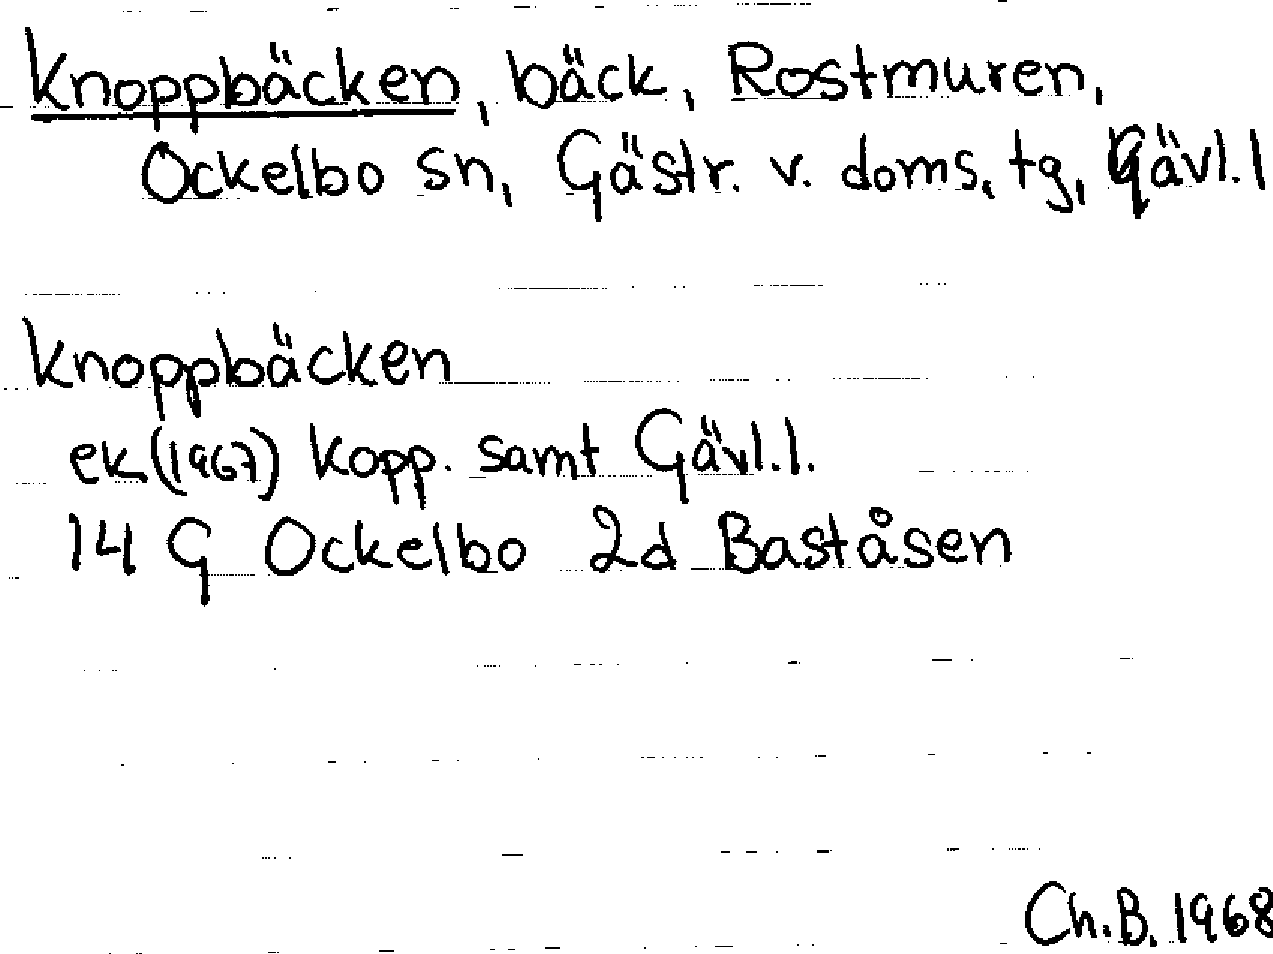 Knoppbäcken, bäck, Rostmuren,
Ockelbo sn, Gästr. v. doms. tg, Gävl. l
Knoppbäcken
ek (1967) Kopp. samt Gävl. l.
14 G Ockelbo 2d Baståsen
Ch. B. 1968